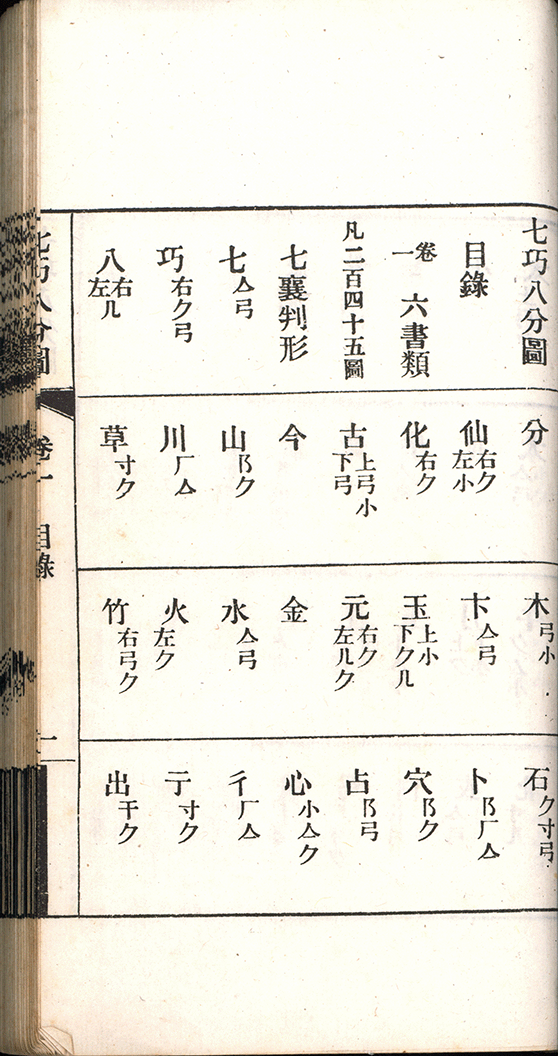 七巧八分圖
目錄
卷一 六書類
凡二百四十五圖
七襄判形
七亼弓
巧右ク弓
八右左几
分
仙右ク左小
化右ク
古上弓小下弓
今
山阝ク
川厂亼
草寸ク
木弓小
卞亼弓
玉上小下ク几
元右ク左几ク
金
水亼弓
火左ク
竹右弓ク
石ク寸弓
卜阝厂亼
穴阝ク
占阝弓
心小亼ク
彳厂亼
亍寸ク
出干ク
七巧八分圖 卷一 目錄 一